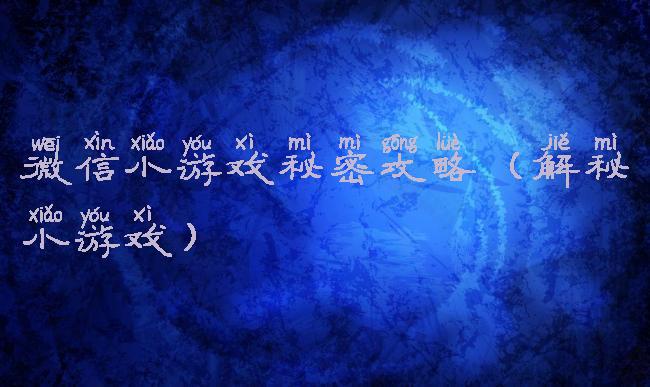 wēi xìn xiǎo yóu xì mì mì gōng lüè jiě mì
微信小游戏秘密攻略（解秘
xiǎo yóu xì
小游戏）